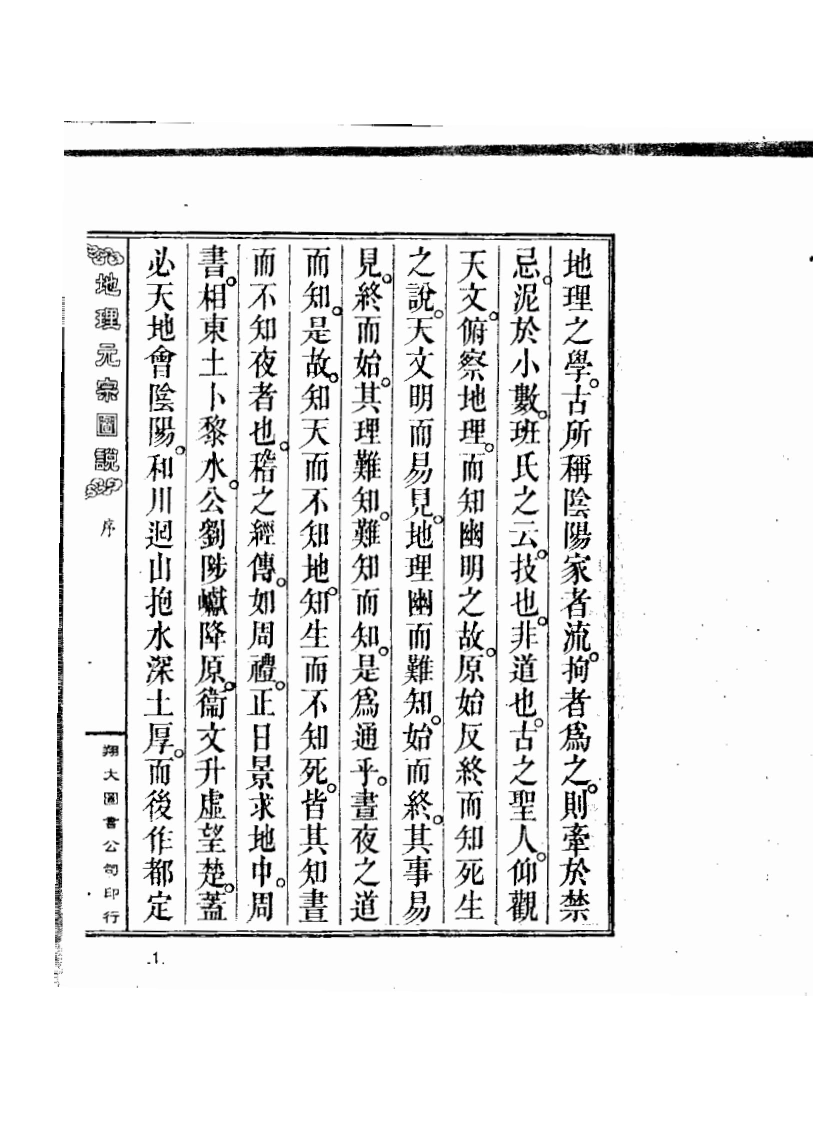 地理之學。古所稱陰陽家者流。拘者爲之。則牽於禁
忌。泥於小數。班氏之云。技也。非道也。古之聖人。仰觀
天文。俯察地理。而知幽明之故。原始反終而知死生
之說。天文明而易見。地理幽而難知。始而終。其事易
見。終而始。其理難知。難知而知。是爲通乎。晝夜之道
而知。是故。知天而不知地。知生而不知死。皆其知晝
而不知夜者也。稽之經傳。如周禮。正日景求地中。周
書。相東土卜黎水。公劉陟巘降原。衞文升虛望楚。蓋
必天地會陰陽。和川迴山抱水深土厚。而後作都定
地理元宗圖說
序
翔大圖書公司印行
.1.